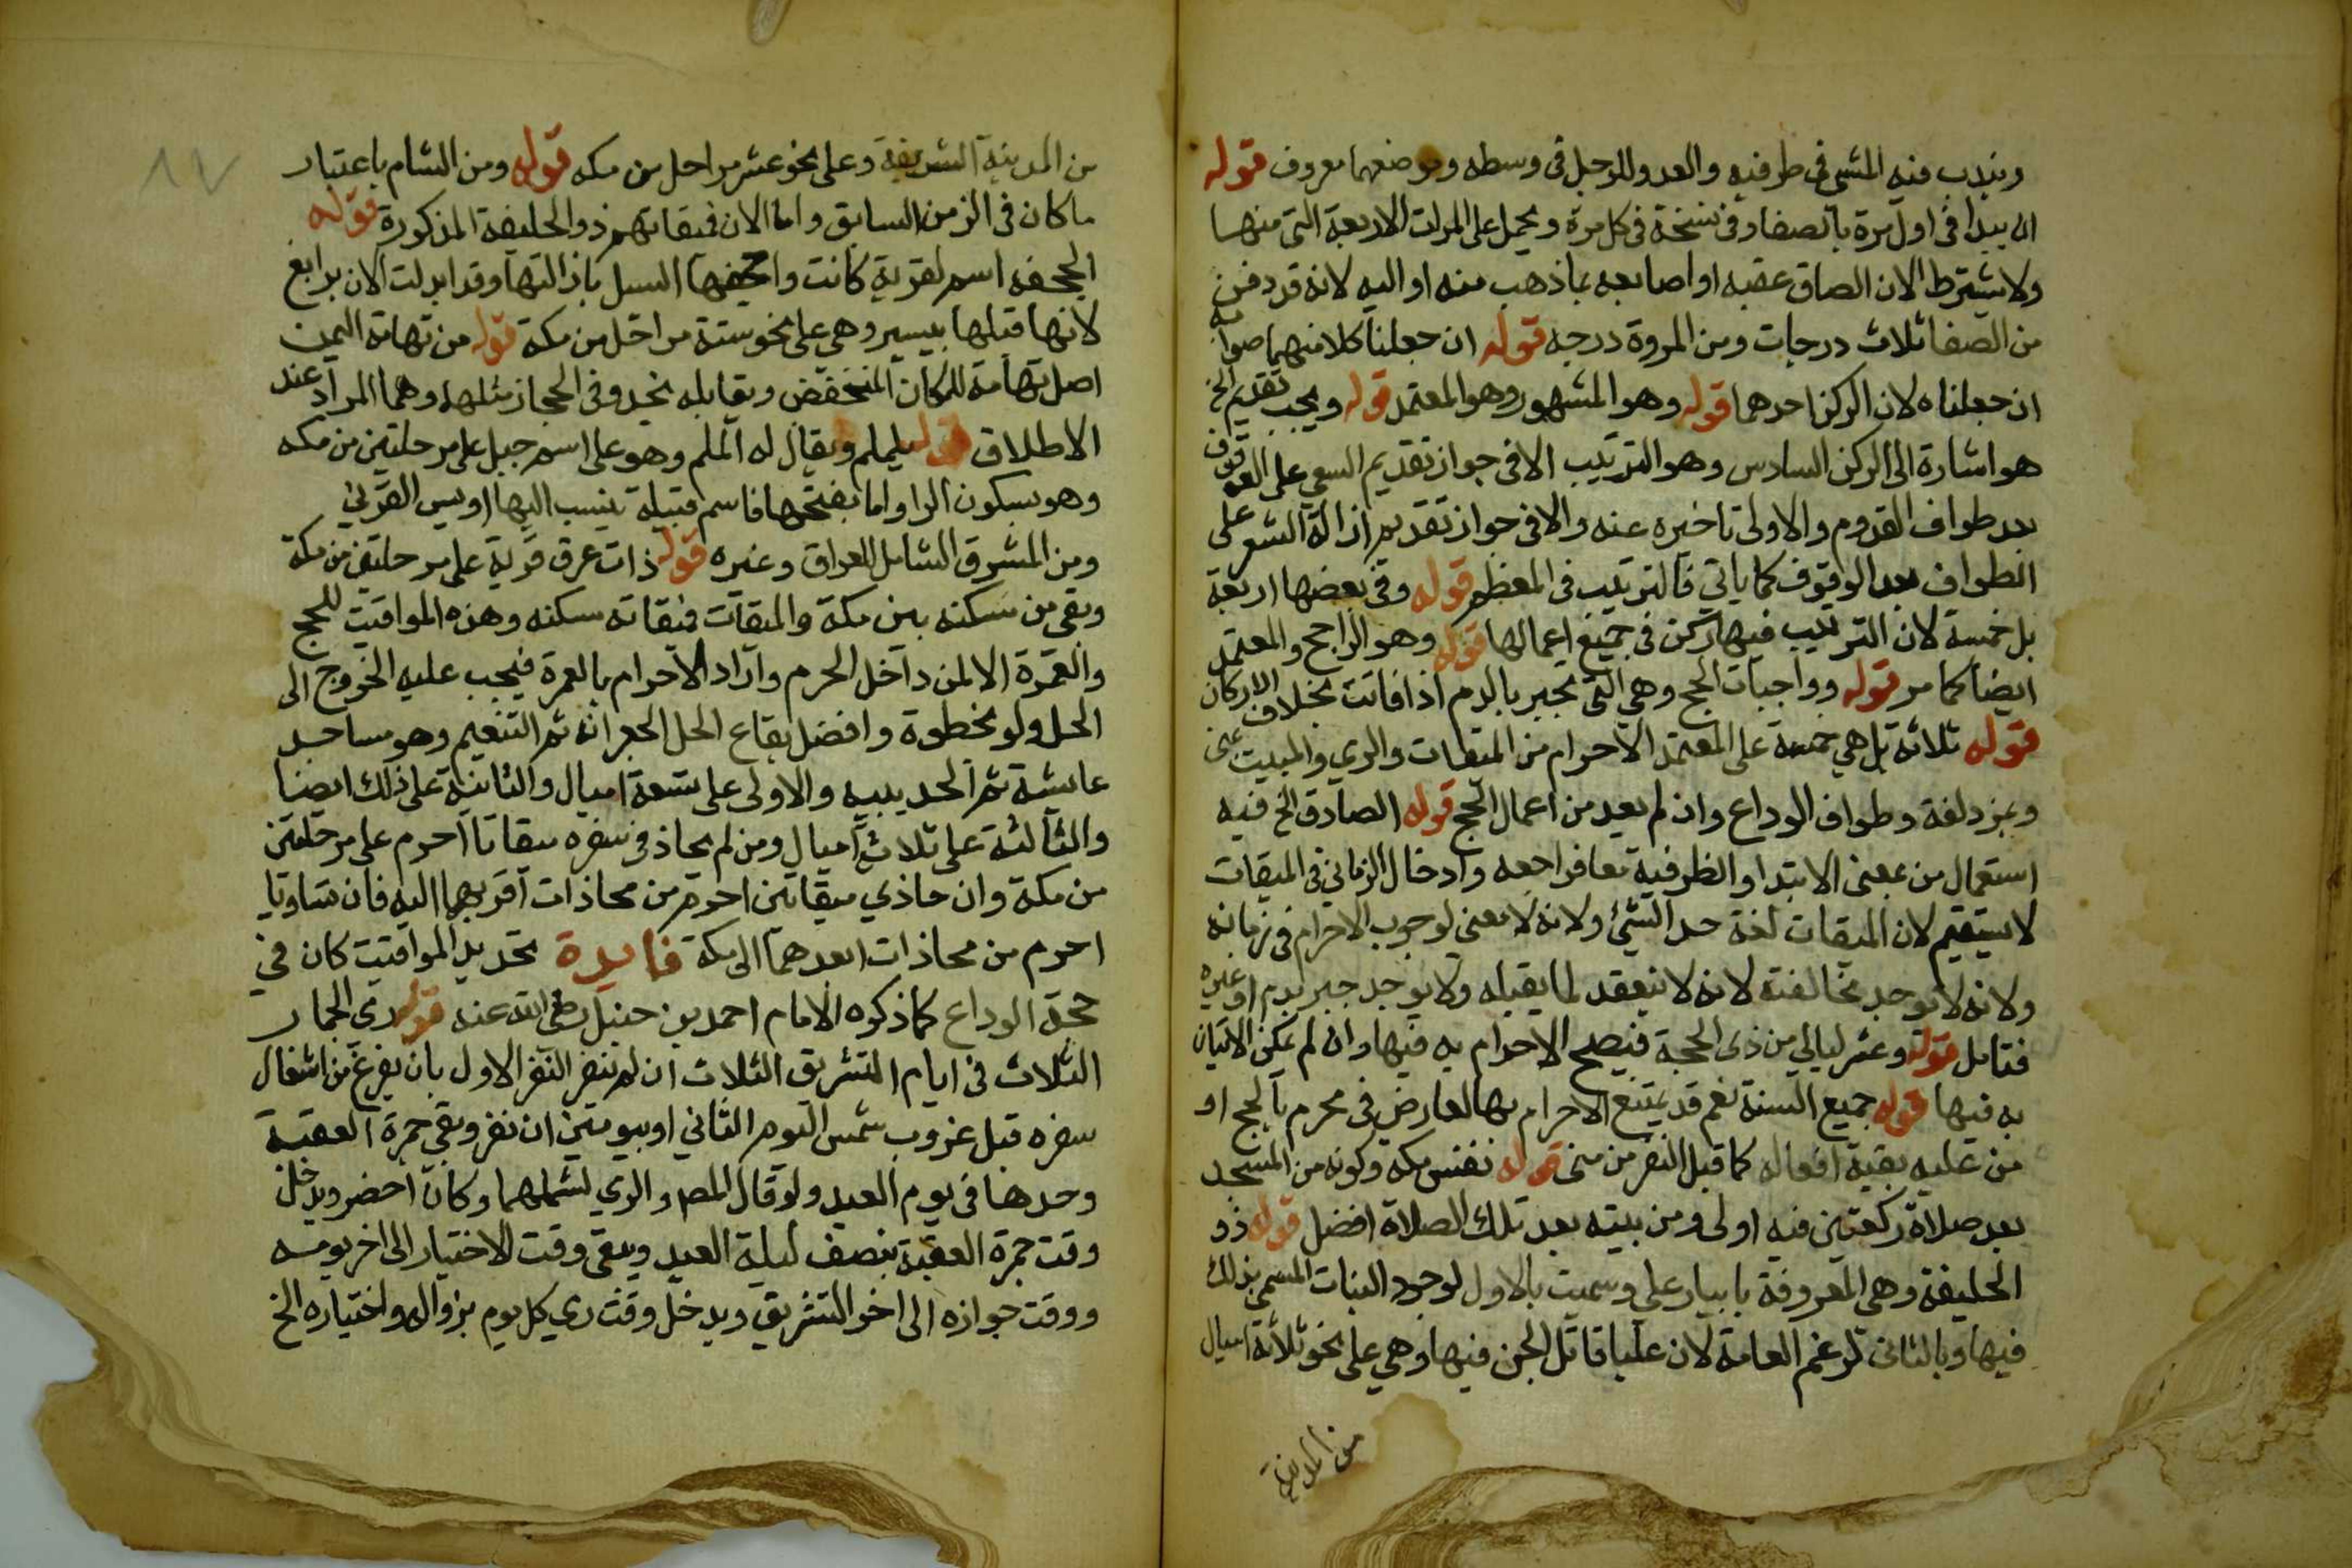 ويندب فيه المشي في طرفيه والعدو للرجل في وسطه وموضعهما معروف قوله
ان يبدا في اول مرة بالصفا وفي نسخة في كل مرة ويحمل على المرات الاربعة التي منها
ولا يشترط الان الصاق عقبه او اصابعه بما ذهب منه او اليه لانه قد دفن
من الصفا ثلاث درجات ومن المروة درجه قوله ان جعلنا كلا منهما صوابه
ان جعلناه لان الركن احدهما قوله وهو المشهور وهو المعتمد قوله ويجب تقديم الخ
هو اشارة الى الركن السادس وهو الترتيب الا في جواز تقديم السعي على الوقوف
بعد طواف القدوم والاولى تاخيره عنه والا في جواز تقديم ازالة الشعر على
الطواف بعد الوقوف كما ياتي فالترتيب في المعظم قوله وفي بعضها اربعة
بل خمسة لان الترتيب فيها ركن في جميع اعمالها قوله وهو الراجح والمعتمد
ايضا كما مر قوله وواجبات الحج وهي التي تجبر بالدم اذا فاتت بخلاف الاركان
قوله ثلاثة بل هي خمسة على المعتمد الاحرام من الميقات والرمي والمبيت بمنى
وبمزدلفة وطواف الوداع وان لم يعد من اعمال الحج قوله الصادق الخ فيه
استعمال من بمعنى الابتدا والظرفية معا فراجعه وادخال الزماني في الميقات
لا يستقيم لان الميقات لغة حد الشئ ولانه لا معنى لوجوب الاحرام في زمانه
ولانه لا توجد مخالفة لانه لا ينعقد لما يقبله ولا يوجد جبر بدم او غيره
فتامل قوله وعشر ليالي من ذي الحجة فيصح الاحرام به فيها وان لم يمكن الاتيان
به فيها قوله جميع السنة نعم قد يمتنع الاحرام بها لعارض في محرم بالحج او
من عليه بقية افعاله كما قبل النفر من منى قوله نفس مكه وكونه من المسجد
بعد صلاة ركعتين فيه اولى ومن بيته بعد تلك الصلاة افضل قوله ذو
الحليفة وهي المعروفة بابيار علي وسميت بالاول لوجود النبات المسمى بذلك
فيها وبالثاني لزعم العامة لان عليا قاتل الجن فيها وهي على نحو ثلاثة اميال
من المدينة
١٧
من المدينة الشريفة وعلى نحو عشر مراحل من مكه قوله ومن الشام باعتبار
ما كان في الزمن السابق واما الان فميقاتهم ذو الحليفة المذكورة قوله
الجحفه اسم لقرية كانت واجحفها السيل باذالتها وقد ابدلت الان برابغ
لانها قبلها بيسير وهي على نحو ستة مراحل من مكة قوله من تهامة اليمن
اصل تهامة للمكان المنخفض ويقابله نجد وفي الحجاز مثلهما وهما المراد عند
الاطلاق قوله يلملم ويقال له الملم وهو على اسم جبل على مرحلتين من مكه
وهو بسكون الرا واما بفتحها فاسم قبيلة ينسب اليها اويس القرني
ومن المشرق الشامل للعراق وغيره قوله ذات عرق قرية على مرحلتين من مكة
وبقي من سكنه بين مكة والميقات فميقاته سكنه وهذه المواقيت للحج
والعمرة الا لمن داخل الحرم واراد الاحرام بالعمرة فيجب عليه الخروج الى
الحل ولو بخطوة وافضل بقاع الحل الجعرانه ثم التنعيم وهو مساجد
عايشة ثم الحديبيه والاولى على تسعة اميال والثانية على ذلك ايضا
والثالثة على ثلاث اميال ومن لم يحاذ في سفره ميقاتا احرم على مرحلتين
من مكة وان حاذي ميقاتين احرم من محاذات اقربهما اليه فان تساويا
احرم من محاذات ابعدهما الى مكة فايدة تحديد المواقيت كان في
حجة الوداع كما ذكره الامام احمد بن حنبل رضي الله عنه قوله رمي الجمار
الثلاث في ايام التشريق الثلاث ان لم ينفر النفر الاول بان يفرغ من اشغال
سفره قبل غروب شمس اليوم الثاني او بيومين ان نفر وبقي جمرة العقبة
وحدها في يوم العيد ولو قال المص والرمي لشملهما وكان احضر ويدخل
وقت جمرة العقبة بنصف ليلة العيد ويبقى وقت الاختيار الى اخر يومه
ووقت جوازه الى اخر التشريق ويدخل وقت رمي كل يوم بزواله واختياره الخ